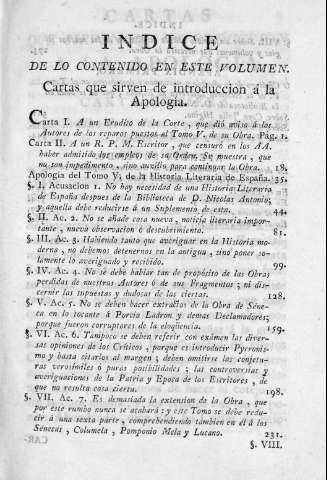 INDICE
DE LO CONTENIDO EN ESTE VOLUMEN.
Cartas que sirven de introduccion á la
Apologia.
Carta I. A un Erudito de la Corte, que dió aviso á los
Autores de los reparos puestos al Tomo V. de su Obra. Pág. 1.
Carta II. A un R. P. M. Escritor, que censuró en los AA.
haber admitido los empleos de su Orden. Se muestra, que
no son impedimento, sino auxilio para continuar la Obra. 18.
Apologia del Tomo V. de la Historia Literaria de España. 35.
§. I. Acusacion 1. No hay necesidad de una Historia Literaria
de España despues de la Biblioteca de D. Nicolas Antonio;
y aquella debe reducirse á un Suplemento de esta. 44.
§. II. Ac. 2. No se añade cosa nueva, noticia literaria impor-
tante, nueva observacion ó descubrimiento. 81.
§. III. Ac. 3. Habiendo tanto que averiguar en la Historia mo-
derna, no debemos detenernos en la antigua, sinó poner so-
lamente lo averiguado y recibido. 99.
§. IV. Ac. 4. No se debe hablar tan de propósito de las Obras
perdidas de nuestros Autores ó de sus Fragmentos; ni dis-
cernir las supuestas y dudosas de las ciertas. 128.
§. V. Ac. 5. No se deben hacer extractos de la Obra de Séne-
ca en lo tocante á Porcio Ladron y demas Declamadores;
porque fueron corruptores de la eloqüencia. 159.
§. VI. Ac. 6. Tampoco se deben referir con exámen las diver-
sas opiniones de los Críticos, porque es introducir Pyrronis-
mo y basta citarlos al margen; deben omitirse las conjetu-
ras verosímiles ó puras posibilidades; las controversias y
averiguaciones de la Patria y Epoca de los Escritores, de
que no resulta cosa cierta. 198.
§. VII. Ac. 7. Es demasiada la extension de la Obra, que
por este rumbo nunca se acabará: y este Tomo se debe redu-
cir á una sexta parte, comprehendiendo tambien en él á los
Sénecas, Columela, Pomponio Mela y Lucano. 231.
§. VIII.